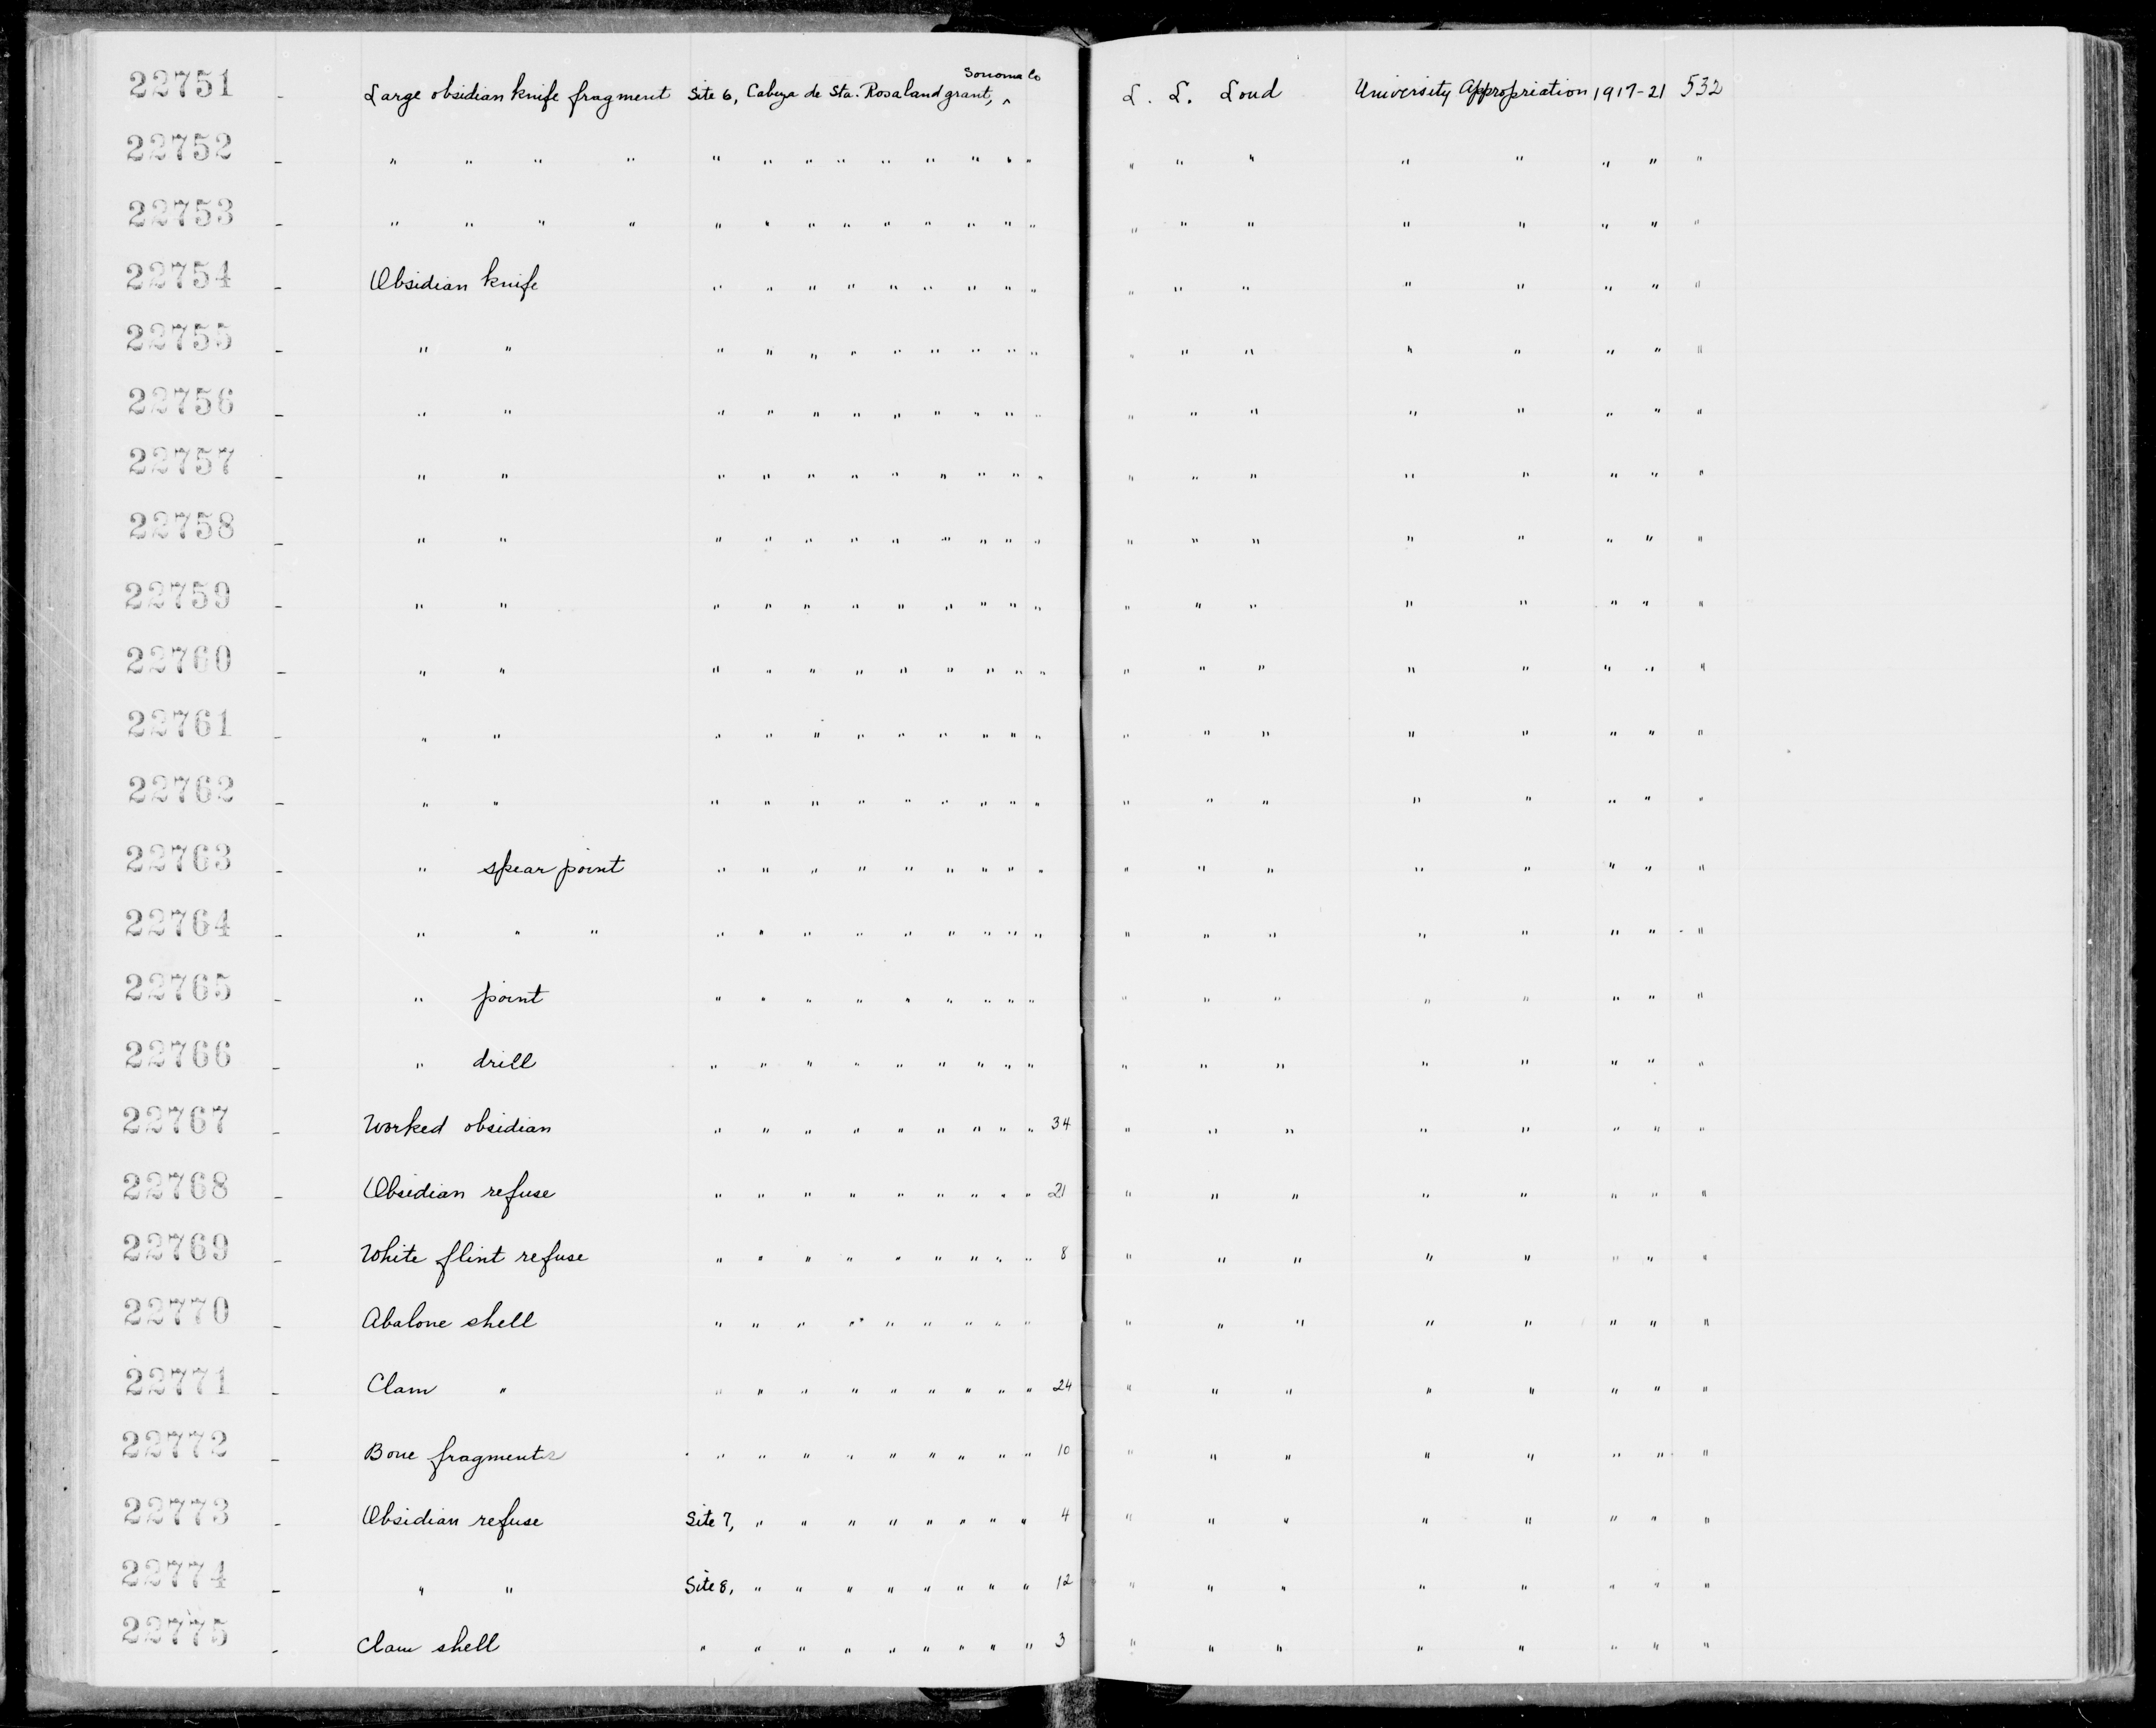 22751 - Large obsidian knife fragment Site 6, Cabeza de Sta. Rosa land grant, ^ Sonoma Co L. L. Loud University Appropriation 1917-21 532
22752 - " " " " " " " " " " " " " " " " " " " " −" "
22753 - " " " " " " " " " " " " " " " " " " " " " "
22754 - Obsidian knife " " " " " " " " " " " " " " " " "
22755 - " " " " " " " " " " " " " " " " " " " "
22756 - " " " " " " " " " " " " " " " " " " " "
22757 - " " " " " " " " " " " " " " " " " " " "
22758 - " " " " " " " " " " " " " " " " " " " "
22759 - " " " " " " " " " " " " " " " " " " " "
22760 - " " " " " " " " " " " " " " " " " " " "
22761 - " " " " " " " " " " " " " " " " " " " "
22762 - " " " " " " " " " " " " " " " " " " " "
22763 - " spear point " " " " " " " " " " " " " " " " "
22764 - " " " " " " " " " " " " " " " " " " " " "
22765 - " point " " " " " " " " " " " " " " " " "
22766 - " drill " " " " " " " " " " " " " " " " "
22767 - Worked obsidian " " " " " " " " " 34 " " " " " " " "
22768 - Obsidian refuse " " " " " " " " " 21 " " " " " " " "
22769 - White flint refuse " " " " " " " " " 8 " " " " " " " "
22770 - Abalone shell " " " " " " " " " " " " " " " " "
22771 - Clam " " " " " " " " " " 24 " " " " " " " "
22772 - Bone fragments " " " " " " " " " 10 " " " " " " " "
22773 - Obsidian refuse Site 7, " " " " " " " " 4 " " " " " " " "
22774 - " " Site 8, " " " " " " " " 12 " " " " " " " "
22775 - Clam shell " " " " " " " " " 3 " " " " " " " "